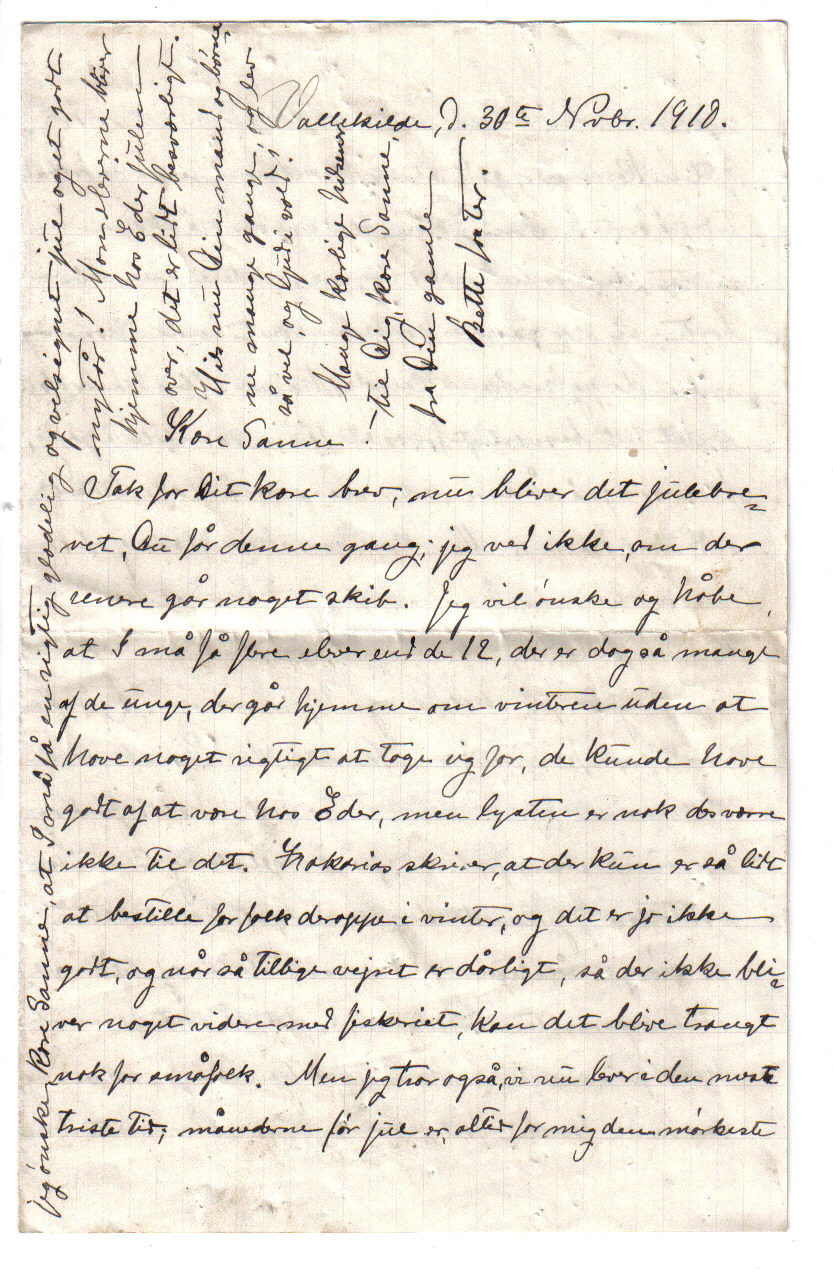 Vallekilde, d. 30te Novbr. 1910.
Kære Sanne!
Tak for Dit kære brev, nu bliver det julebre=
vet, Du får denne gang; jeg ved ikke, om der
senere går noget skib. Jeg vil ønske og håbe,
at I må få flere elever end de 12, der er dog så mange
af de unge, der går hjemme om vinteren uden at
have noget rigtigt at tage sig for, de kunde have
godt af at være hos Eder, men lysten er nok desværre
ikke til det. Zakarias skriver, at der kun er så lidt
at bestille for folk deroppe i vinter, og det er jo ikke
godt, og når så tillige vejret er dårligt, så der ikke bli=
ver noget videre med fiskeriet, kan det blive trangt
nok for småfolk. Men jeg tror også, vi nu lever i den mest
triste tid; månederne før jul er altid for mig den mørkeste
Jeg ønsker, kære Sanne, at I må få en rigtig glædelig og velsignet jul og et godt
nytår! Mon eleverne bliver
hjemme hos Eder julen
over, det er lidt besværligt.
Hils nu Din mand og børne
ne mange gange, og lev
så vel, og Gud i vold!
Mange kærlige hilsener
til Dig, kære Sanne,
fra Din gamle
Bette faster.